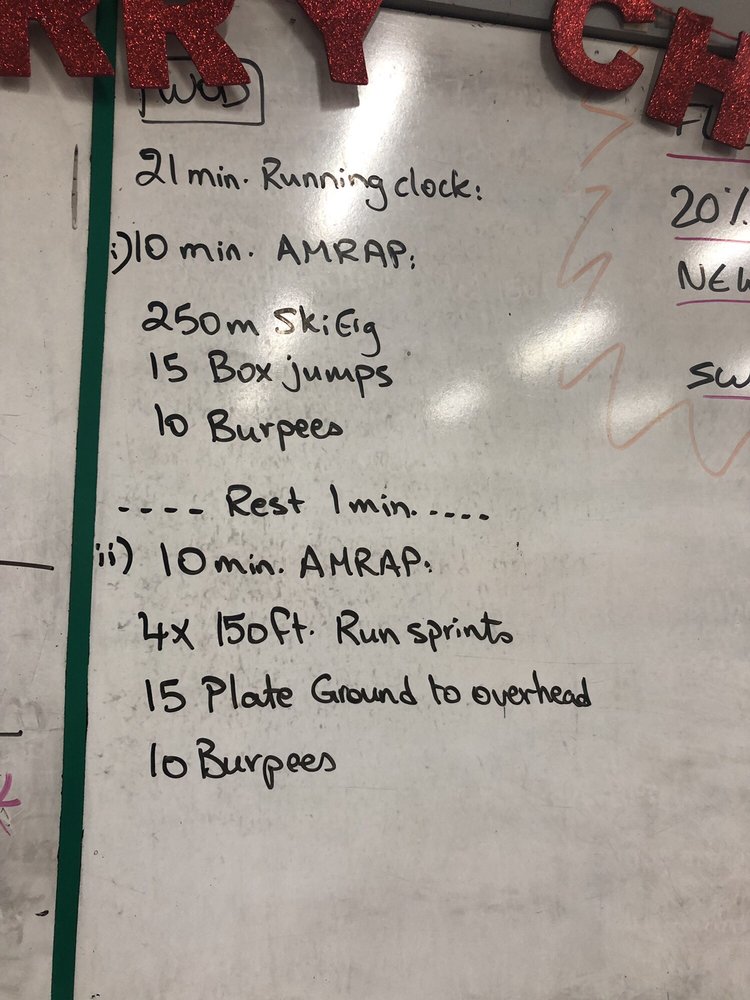 RRY CH
WOD
21 min. Running clock:
i) 10 min. AMRAP:
250m Ski Erg
15 Box jumps
10 Burpees
---- Rest 1 min. ----
ii) 10 min. AMRAP:
4x 150ft. Run sprints
15 Plate Ground to overhead
10 Burpees
20%
NEW
SW